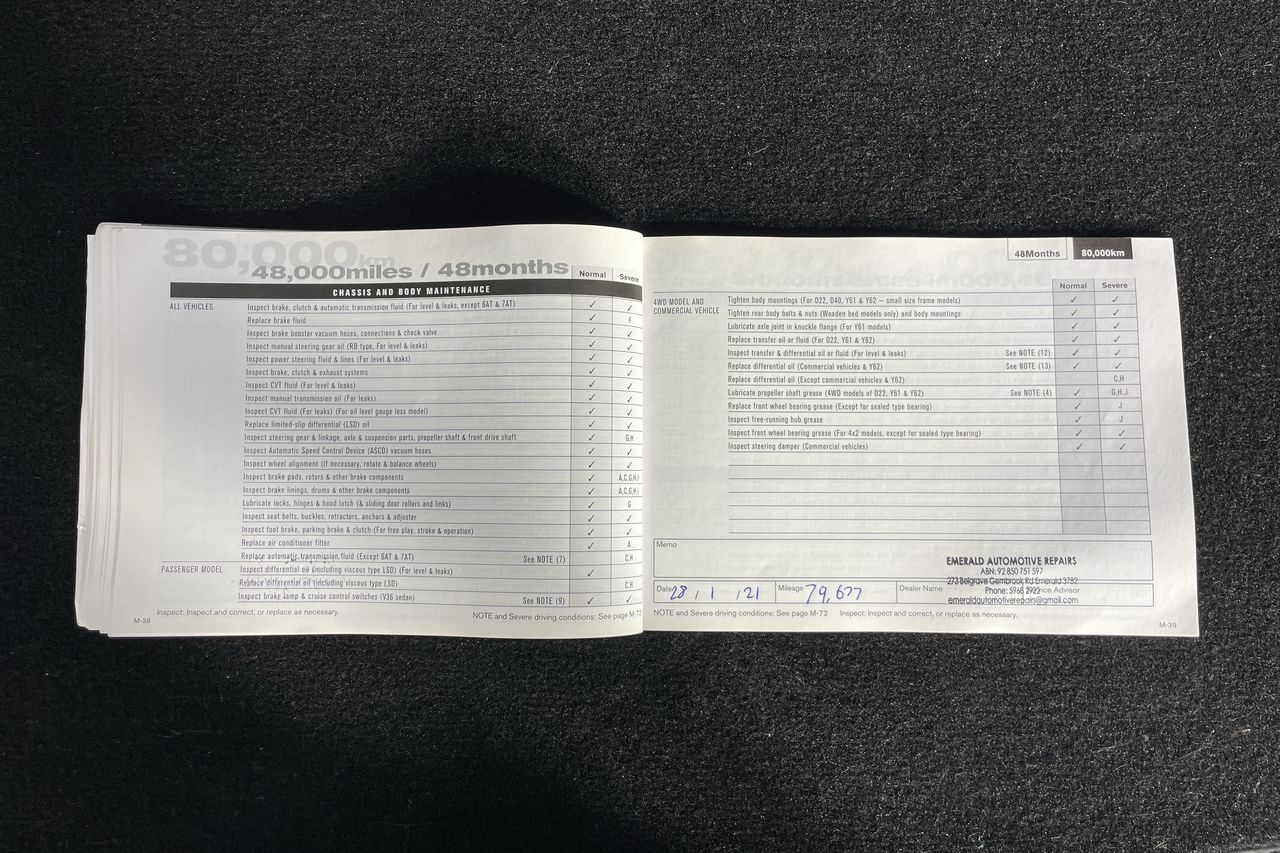 80,000km
48,000miles / 48months
Normal
Severe
CHASSIS AND BODY MAINTENANCE
ALL VEHICLES
Inspect brake, clutch & automatic transmission fluid (For level & leaks, except 6AT & 7AT) ✓ ✓
Replace brake fluid ✓
Inspect brake booster vacuum hoses, connections & check valve ✓ ✓
Inspect manual steering gear oil (RB type, For level & leaks) ✓ ✓
Inspect power steering fluid & lines (For level & leaks) ✓ ✓
Inspect brake, clutch & exhaust systems ✓ ✓
Inspect CVT fluid (For level & leaks) ✓ ✓
Inspect manual transmission oil (For leaks) ✓ ✓
Inspect CVT fluid (For leaks) (For oil level gauge less model) ✓ ✓
Replace limited-slip differential (LSD) oil ✓ ✓
Inspect steering gear & linkage, axle & suspension parts, propeller shaft & front drive shaft ✓ G,H
Inspect Automatic Speed Control Device (ASCD) vacuum hoses ✓ ✓
Inspect wheel alignment (If necessary, rotate & balance wheels) ✓ ✓
Inspect brake pads, rotors & other brake components ✓ A,C,G,H,I
Inspect brake linings, drums & other brake components ✓ A,C,G,H,I
Lubricate locks, hinges & hood latch (& sliding door rollers and links) ✓ G
Inspect seat belts, buckles, retractors, anchors & adjuster ✓ ✓
Inspect foot brake, parking brake & clutch (For free play, stroke & operation) ✓ ✓
Replace air conditioner filter ✓ A
Replace automatic transmission fluid (Except 6AT & 7AT) See NOTE (7) C,H
PASSENGER MODEL
Inspect differential oil (including viscous type LSD) (For level & leaks) ✓
Replace differential oil (including viscous type LSD) C,H
Inspect brake lamp & cruise control switches (V36 sedan) See NOTE (9) ✓ ✓
Inspect: Inspect and correct, or replace as necessary.
NOTE and Severe driving conditions: See page M-72
M-38
48Months
80,000km
Normal
Severe
4WD MODEL AND
COMMERCIAL VEHICLE
Tighten body mountings (For D22, D40, Y61 & Y62 – small size frame models) ✓ ✓
Tighten rear body bolts & nuts (Wooden bed models only) and body mountings ✓ ✓
Lubricate axle joint in knuckle flange (For Y61 models) ✓ ✓
Replace transfer oil or fluid (For D22, Y61 & Y62) ✓ ✓
Inspect transfer & differential oil or fluid (For level & leaks) See NOTE (12) ✓ ✓
Replace differential oil (Commercial vehicles & Y62) See NOTE (13) ✓ ✓
Replace differential oil (Except commercial vehicles & Y62) C,H
Lubricate propeller shaft grease (4WD models of D22, Y61 & Y62) See NOTE (4) ✓ G,H,J
Replace front wheel bearing grease (Except for sealed type bearing) ✓ J
Inspect free-running hub grease ✓ J
Inspect front wheel bearing grease (For 4x2 models, except for sealed type bearing) ✓ ✓
Inspect steering damper (Commercial vehicles) ✓ ✓
Memo
EMERALD AUTOMOTIVE REPAIRS
ABN: 92 850 751 597
273 Belgrave Gembrook Rd Emerald 3782
Phone: 5968 2922
emeraldautomotiverepairs@gmail.com
Date 28 / 1 / 21
Mileage 79,677
Dealer Name
Advisor
NOTE and Severe driving conditions: See page M-72
Inspect: Inspect and correct, or replace as necessary.
M-39